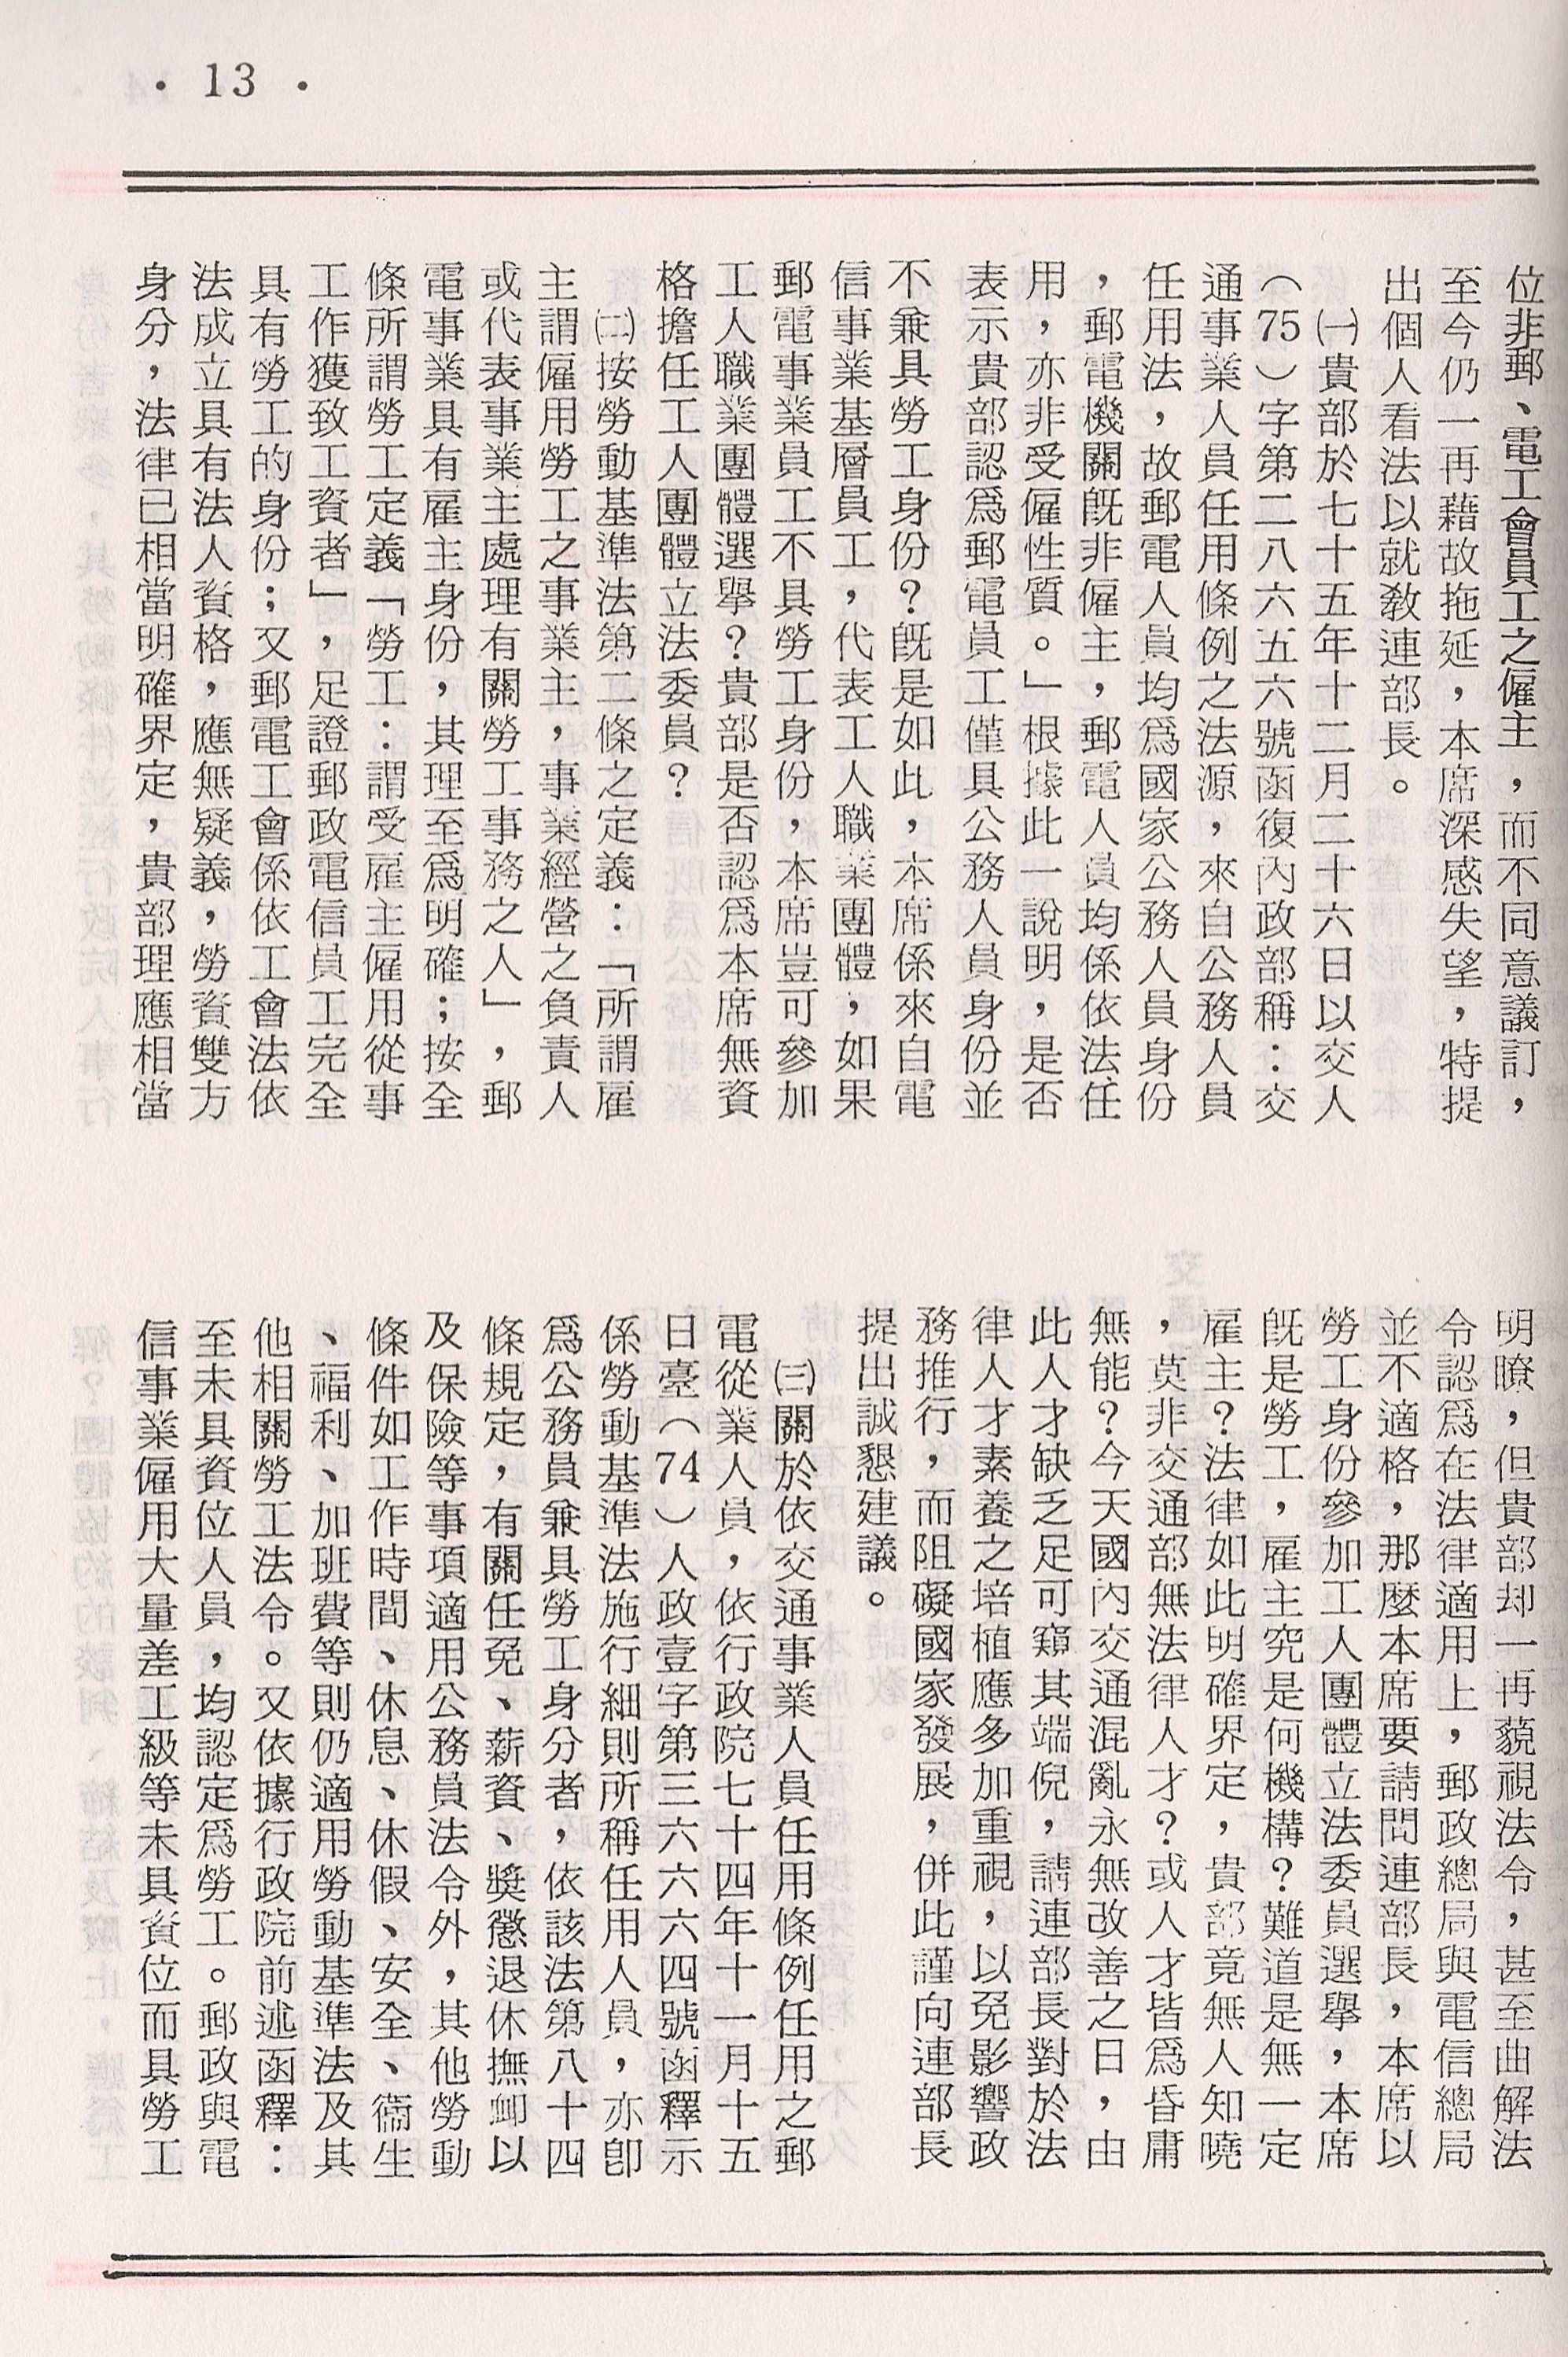 · 13 ·
位非郵、電工會員工之僱主，而不同意議訂，
至今仍一再藉故拖延，本席深感失望，特提
出個人看法以就敎連部長。
㈠貴部於七十五年十二月二十六日以交人
（75）字第二八六五六號函復內政部稱：交
通事業人員任用條例之法源，來自公務人員
任用法，故郵電人員均爲國家公務人員身份
，郵電機關既非僱主，郵電人員均係依法任
用，亦非受僱性質。」根據此一說明，是否
表示貴部認爲郵電員工僅具公務人員身份並
不兼具勞工身份？既是如此，本席係來自電
信事業基層員工，代表工人職業團體，如果
郵電事業員工不具勞工身份，本席豈可參加
工人職業團體選舉？貴部是否認爲本席無資
格擔任工人團體立法委員？
㈡按勞動基準法第二條之定義：「所謂雇
主謂僱用勞工之事業主，事業經營之負責人
或代表事業主處理有關勞工事務之人」，郵
電事業具有雇主身份，其理至爲明確；按全
條所謂勞工定義「勞工：謂受雇主僱用從事
工作獲致工資者」，足證郵政電信員工完全
具有勞工的身份；又郵電工會係依工會法依
法成立具有法人資格，應無疑義，勞資雙方
身分，法律已相當明確界定，貴部理應相當
明瞭，但貴部却一再藐視法令，甚至曲解法
令認爲在法律適用上，郵政總局與電信總局
並不適格，那麼本席要請問連部長，本席以
勞工身份參加工人團體立法委員選舉，本席
既是勞工，雇主究是何機構？難道是無一定
雇主？法律如此明確界定，貴部竟無人知曉
，莫非交通部無法律人才？或人才皆爲昏庸
無能？今天國內交通混亂永無改善之日，由
此人才缺乏足可窺其端倪，請連部長對於法
律人才素養之培植應多加重視，以免影響政
務推行，而阻礙國家發展，併此謹向連部長
提出誠懇建議。
㈢關於依交通事業人員任用條例任用之郵
電從業人員，依行政院七十四年十一月十五
日臺（74）人政壹字第三六六六四號函釋示
係勞動基準法施行細則所稱任用人員，亦卽
爲公務員兼具勞工身分者，依該法第八十四
條規定，有關任免、薪資、獎懲退休撫卹以
及保險等事項適用公務員法令外，其他勞動
條件如工作時間、休息、休假、安全、衞生
、福利、加班費等則仍適用勞動基準法及其
他相關勞工法令。又依據行政院前述函釋：
至未具資位人員，均認定爲勞工。郵政與電
信事業僱用大量差工級等未具資位而具勞工